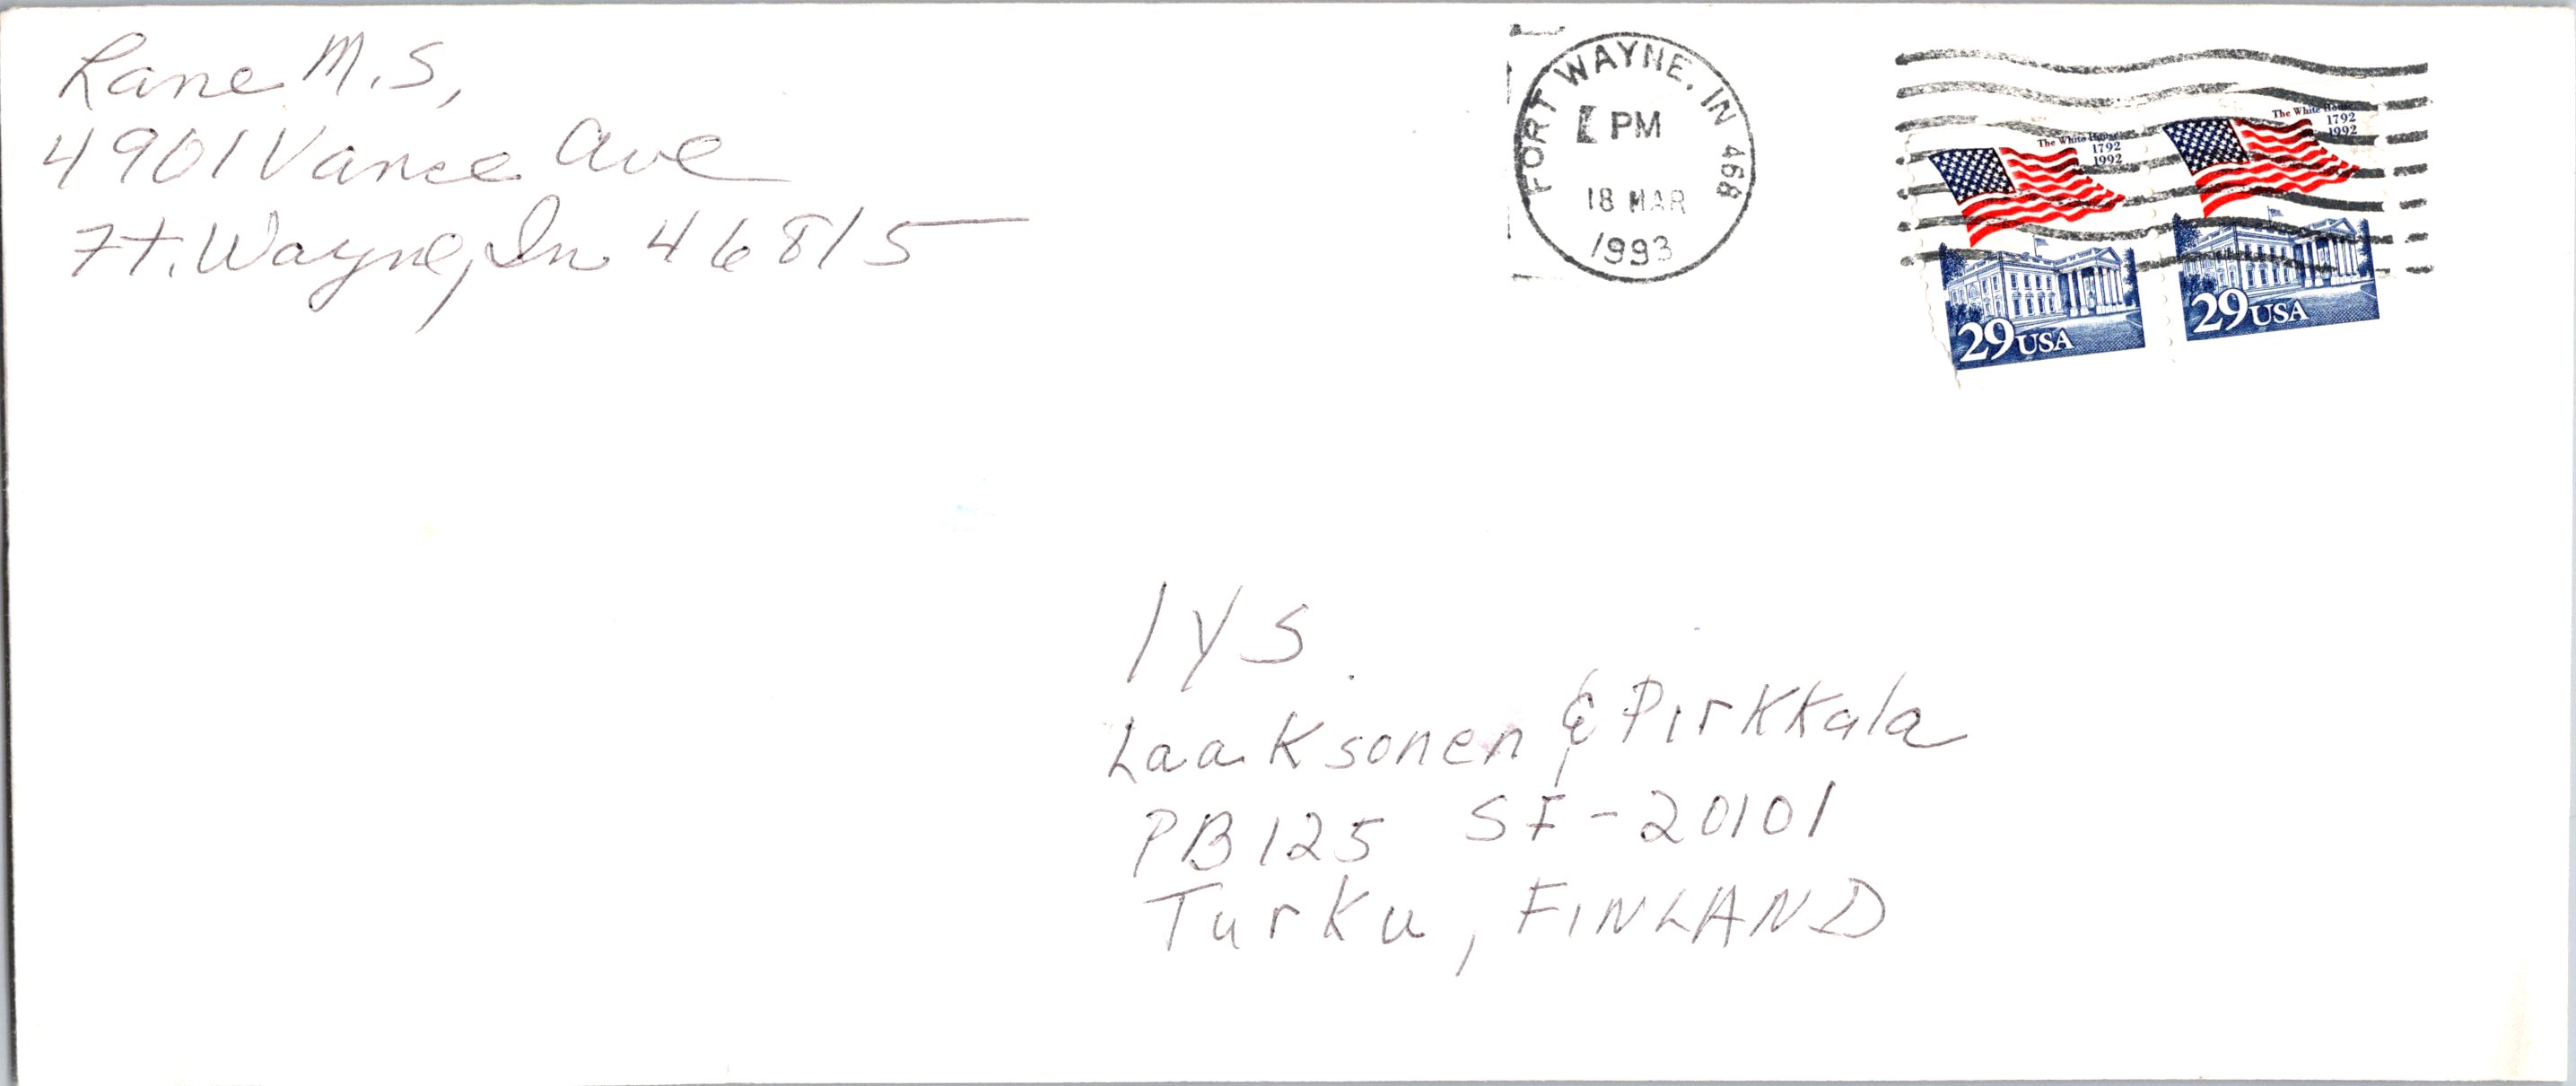 Lane M.S,
4901 Vance Ave
Ft. Wayne, In 46815
FORT WAYNE, IN 468
PM
18 MAR
1993
The White House
1792
1992
29 USA
The White House
1792
1992
29 USA
IYS
Laaksonen & Pirkkala
PB 125 SF-20101
Turku, FINLAND